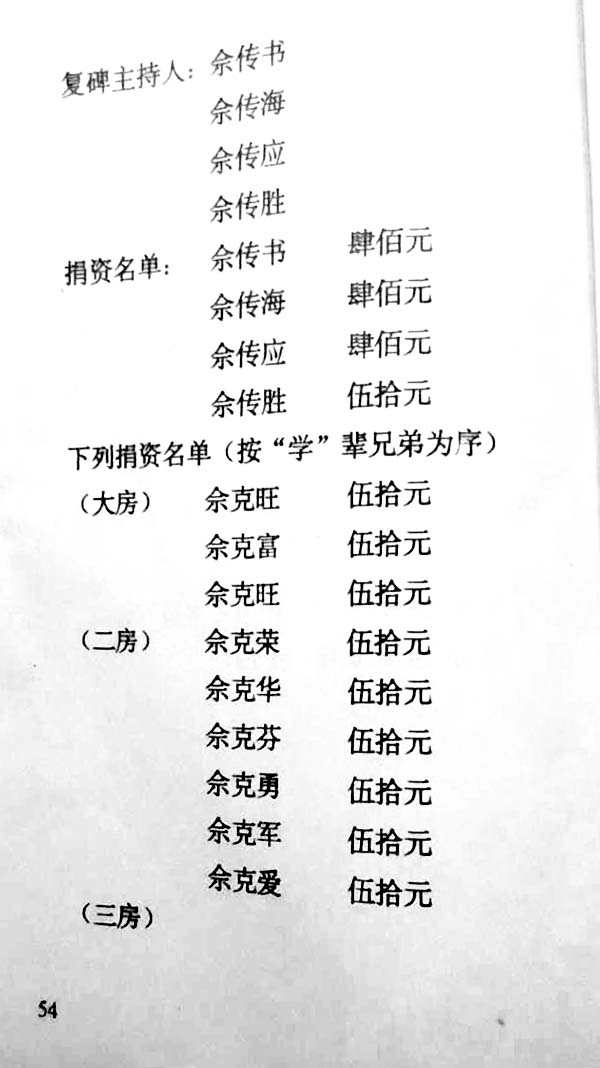 复碑主持人：佘传书
佘传海
佘传应
佘传胜
捐资名单：佘传书 肆佰元
佘传海 肆佰元
佘传应 肆佰元
佘传胜 伍拾元
下列捐资名单（按“学”辈兄弟为序）
（大房） 佘克旺 伍拾元
佘克富 伍拾元
佘克旺 伍拾元
（二房） 佘克荣 伍拾元
佘克华 伍拾元
佘克芬 伍拾元
佘克勇 伍拾元
佘克军 伍拾元
佘克爱 伍拾元
（三房）
54